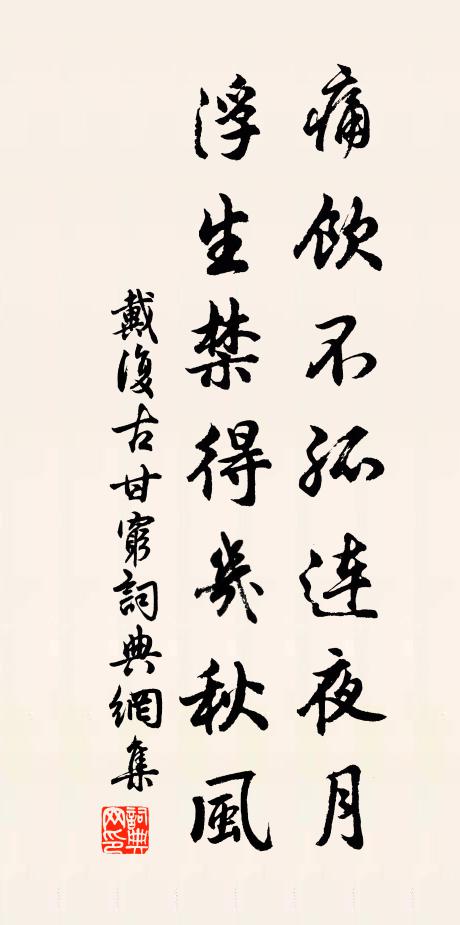 痛飲不孤連夜月
浮生禁得幾秋風
戴復古甘窮詞典網集
詞典網印